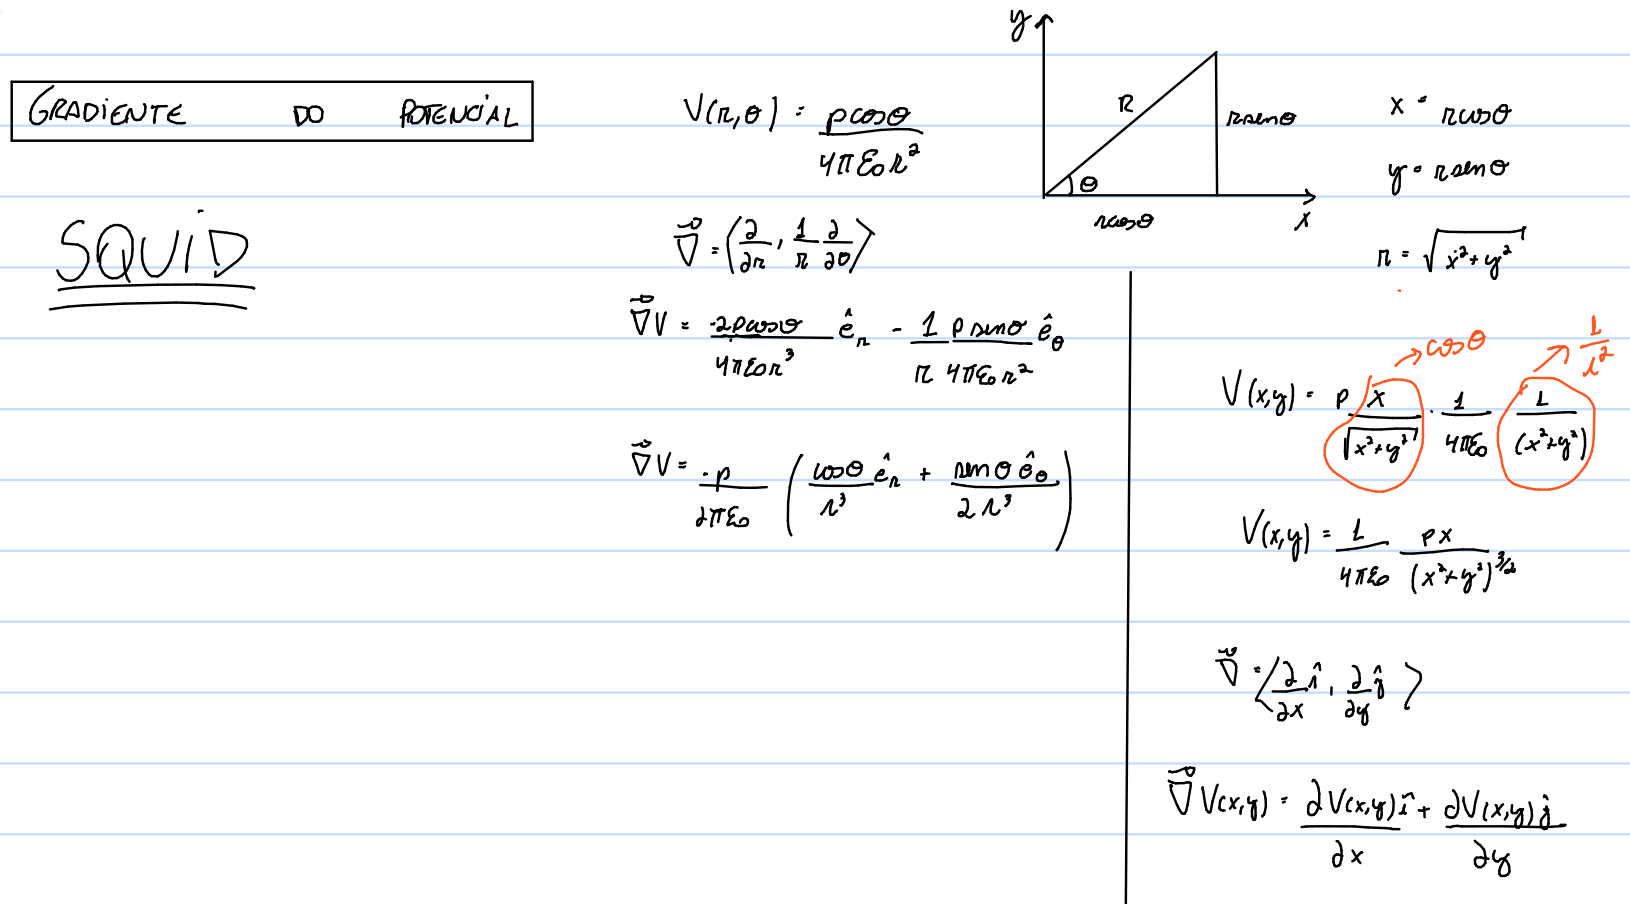 GRADIENTE DO POTENCIAL
SQUID
V(r,θ) = pcosθ / 4πε₀r²
∇⃗ = ⟨∂/∂r, 1/r ∂/∂θ⟩
∇⃗V = -2pcosθ / 4πε₀r³ ê_r - 1/r psenθ / 4πε₀r² ê_θ
∇⃗V = -p / 2πε₀ (cosθ / r³ ê_r + senθ ê_θ / 2r³)
y
R
rsenθ
θ
rcosθ
x
x = rcosθ
y = rsenθ
r = √(x²+y²)
→ cosθ
→ 1/r²
V(x,y) = p x / √(x²+y²) · 1 / 4πε₀ · 1 / (x²+y²)
V(x,y) = 1 / 4πε₀ px / (x²+y²)^3/2
∇⃗ = ⟨∂/∂x î, ∂/∂y ĵ⟩
∇⃗V(x,y) = ∂V(x,y) î / ∂x + ∂V(x,y) ĵ / ∂y